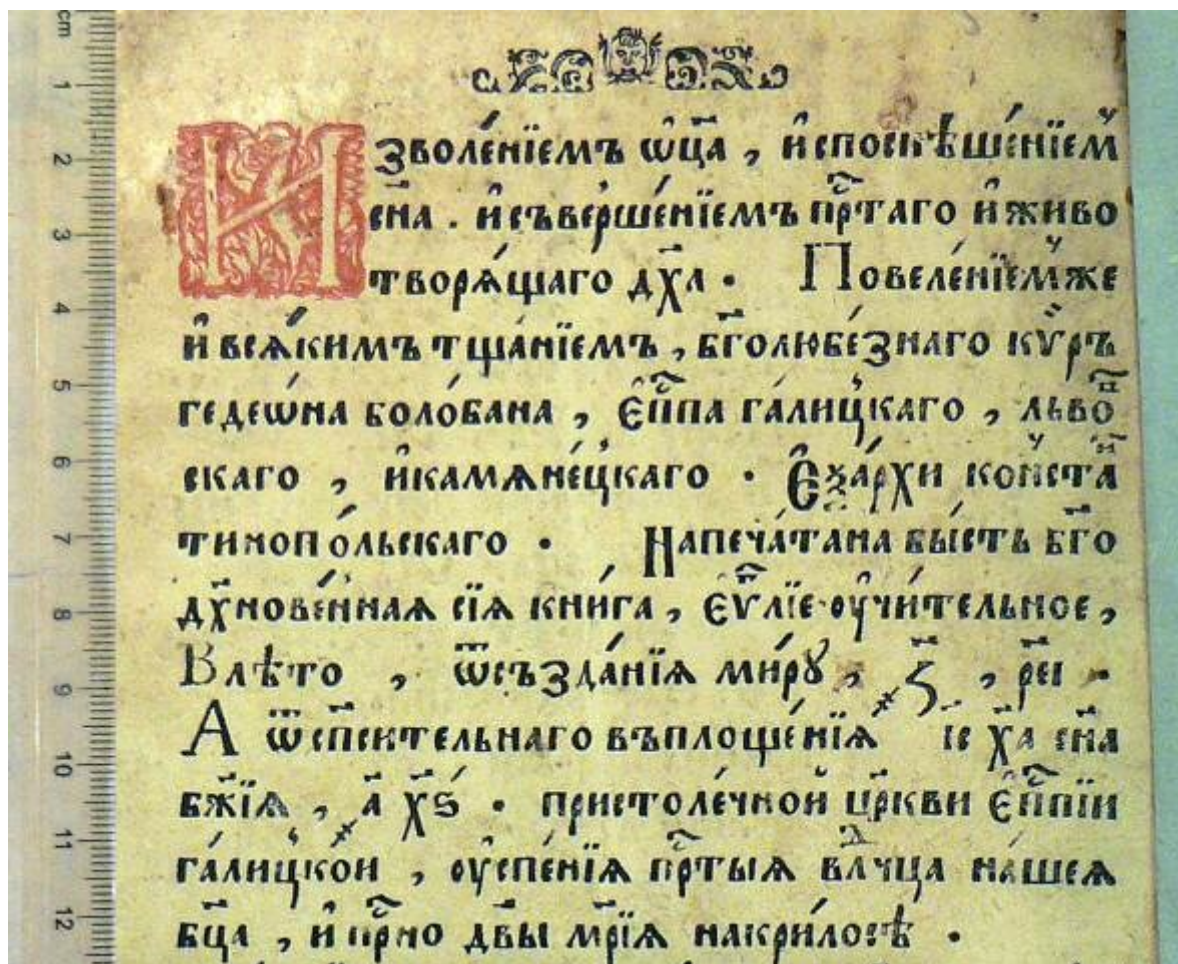 cm
1
2
3
4
5
6
7
8
9
10
11
12
Изволе́нїемъ ѡ҃ца , и҆ споспѣше́нїемъ
сн҃а . и҆ съверше́нїемъ пр҃стаго и҆ живо
творѧ́щаго дх҃а . Повеле́нїемже
и҆ всѧ́кимъ тща́нїемъ , бг҃олюбе́знаго кѵ̈ръ
гедеѡ́на болоба́на , є҆пⷭ҇па га́лицкаго , льво́в
скаго , и҆ камѧне́цкаго . Єѯа́рхи ко́нста
тинопо́льскаго . Напеча́тана бы́сть бг҃о
дх҃нове́ннаѧ сїѧ кни́га , є҆ѵⷢ҇лїе ѹ҆чи́тельное ,
В лѣто , ѿ създа́нїѧ ми́рꙋ , ҂з҃ , ре҃і .
А ѿ сп҃сительнаго въплоще́нїѧ іс҃ х҃а сн҃а
бж҃їѧ , ҂а҃ х҃ѕ . при столе́чной цр҃кви є҆пⷭ҇пїи
га́лицкой , ѹ҆спе́нїѧ прⷭ҇тыѧ влⷣчца на́шеѧ
бц҃а , и҆ прⷭ҇но дв҃ы мр҃їѧ на кри́лосѣ .